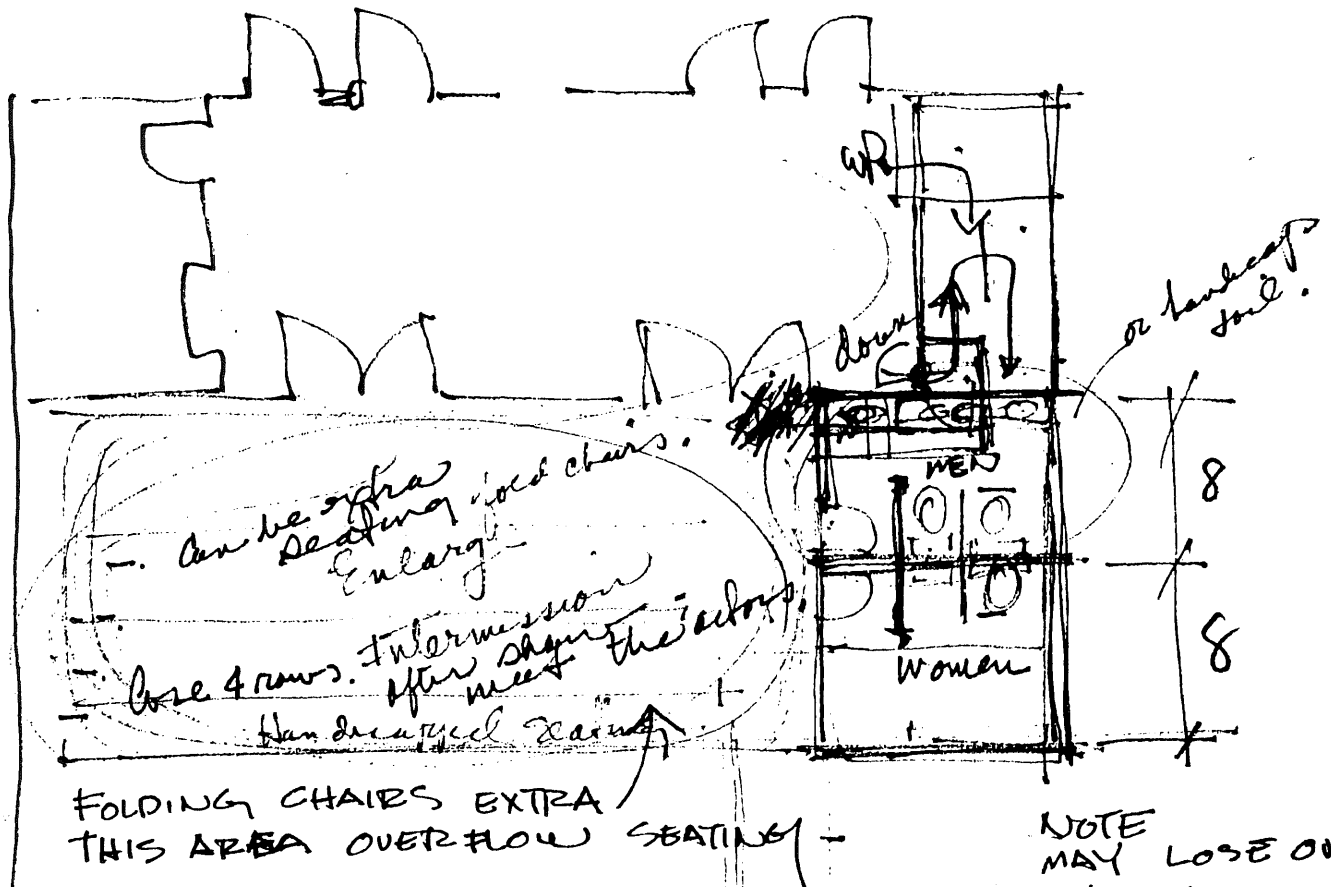 UP
down
or handicap
toil.
MEN
8
Can be extra
seating fold chairs.
Enlarg
8
4 rows. Intermission
after show
meet the actors.
Women
Handicapped Seating
FOLDING CHAIRS EXTRA
THIS AREA OVERFLOW SEATING
NOTE
MAY LOSE